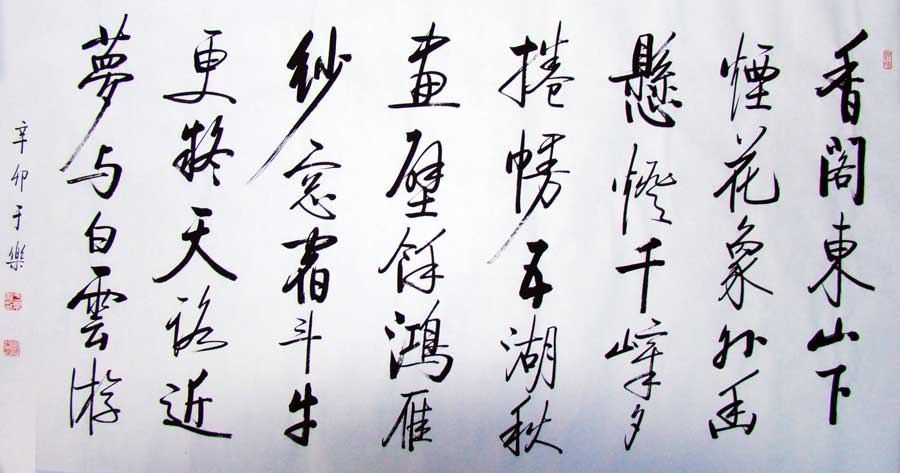 香閣東山下
煙花象外幽
懸燈千嶂夕
捲幔五湖秋
畫壁餘鴻雁
紗窓宿斗牛
更疑天路近
夢与白雲游
辛卯于樂